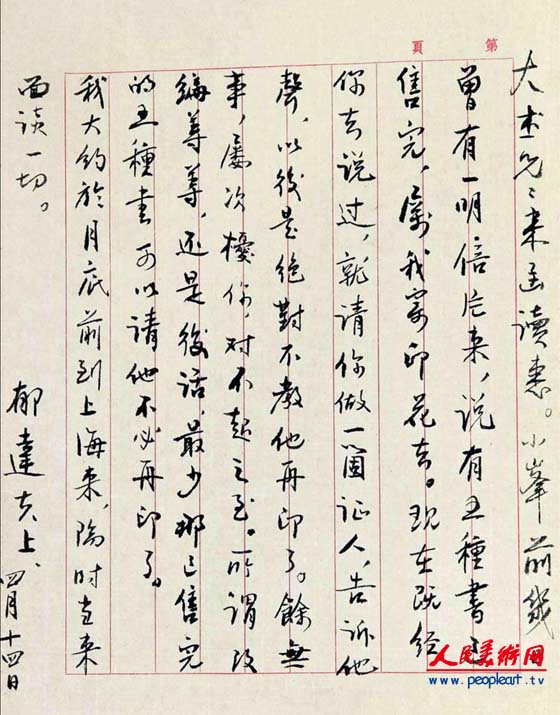 第 頁
大杰兄：来函读悉。小峯前幾
曾有一明信片来，说有五種書已
售完，属我寄印花去。现在既经
你去说过，就请你做一箇证人，告诉他
聲，以後是絶對不教他再印了。餘無
事，屡次擾你，对不起之至。所谓改
编等等，还是後话，最少那已售完
的五種書可以请他不必再印了。
我大约於月底前到上海来，临时当来
面谈一切。
郁達夫上、四月十四日
人民美術网
www.peopleart.tv